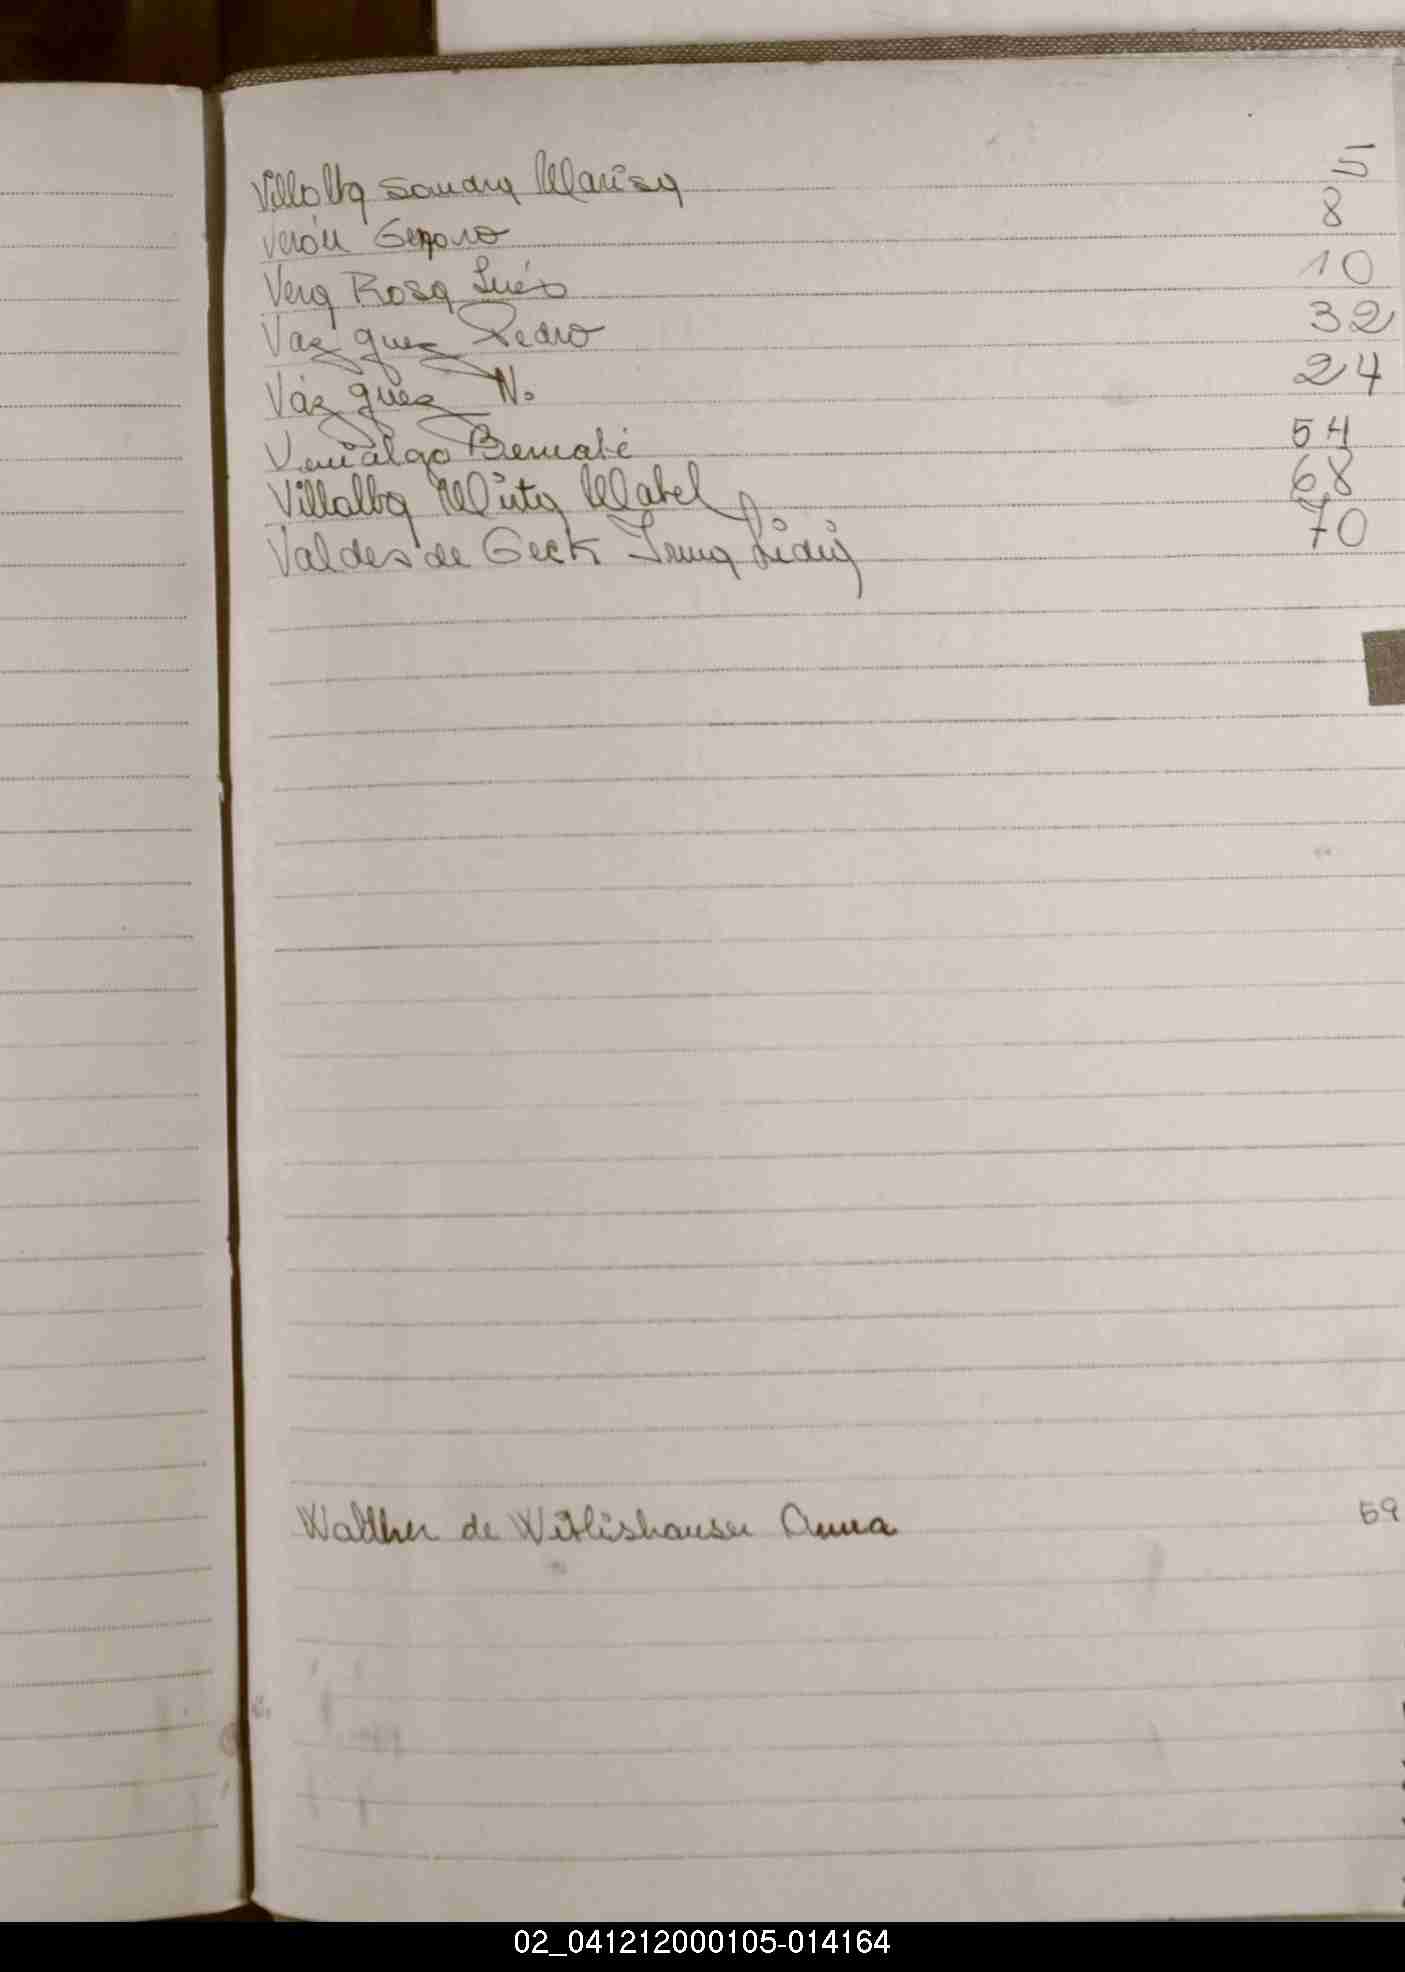 Villalba Sandra Marisa 5
Verón Genaro 8
Vera Rosa Inés 10
Vazquez Pedro 32
Vázquez N. 24
Venialgo Bernabé 54
Villalba Mirta Mabel 68
Valdes de Geck Irma Lidia 70
Walther de Witlishauser Anna 59
02_041212000105-014164